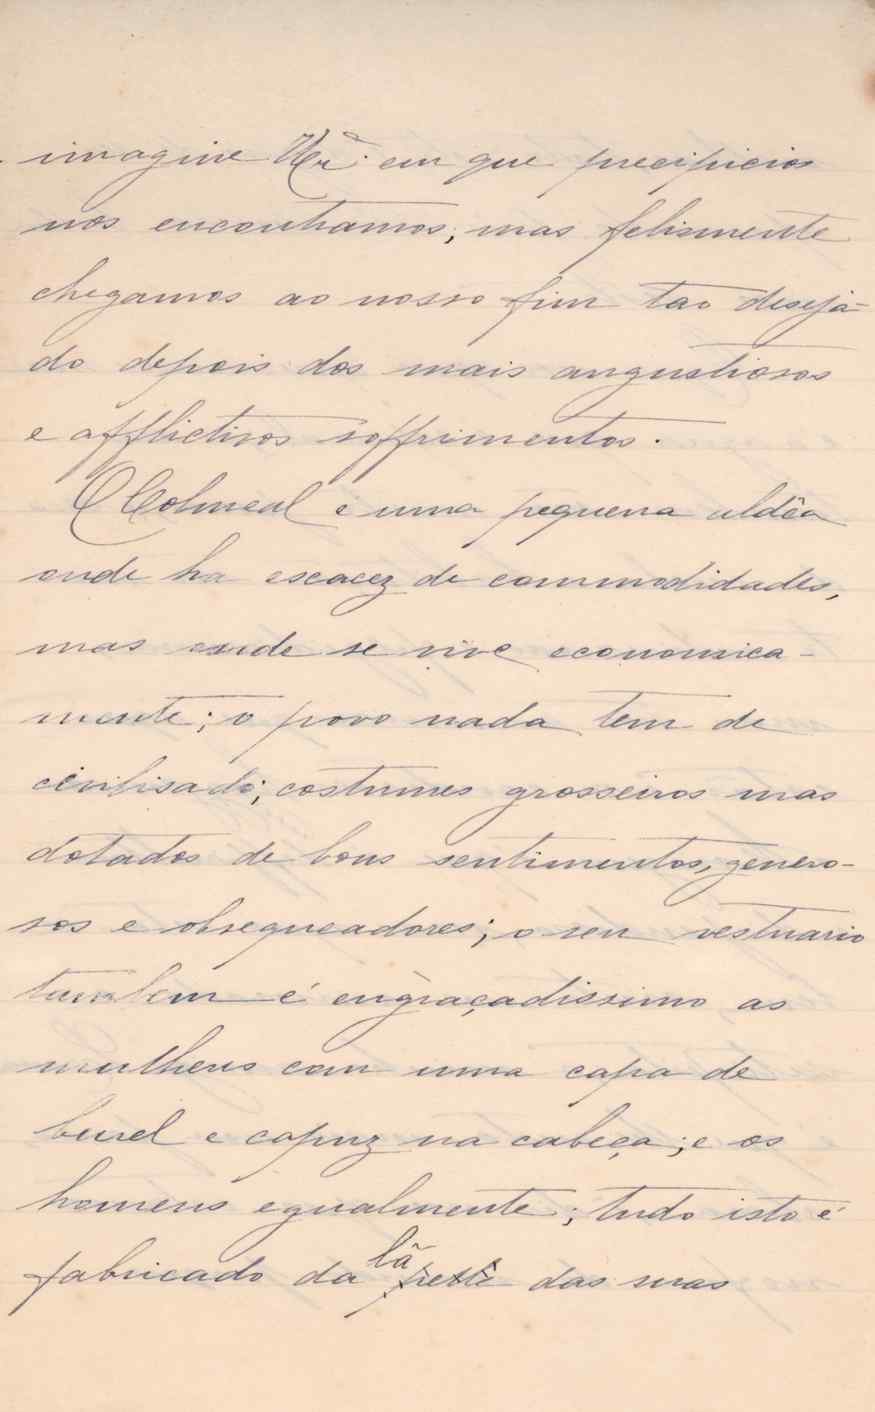 imagine V. Ex.ª em que precipicios
nos encontramos; mas felismente
chegamos ao nosso fim tão desejá-
do depois dos mais angustiosos
e afflictivos soffrimentos.
O Colmeal é uma pequena aldêa
onde ha escacez de commodidades,
mas onde se vive economica-
mente; o povo nada tem de
civilisado; costumes grosseiros mas
dotados de bons sentimentos, genero-
sos e obsequeadores; o seu vestuario
tambem é engraçadissimo as
mulheres com uma capa de
burel e capuz na cabeça; e os
homens egualmente; tudo isto é
fabricado da lã pelle das suas